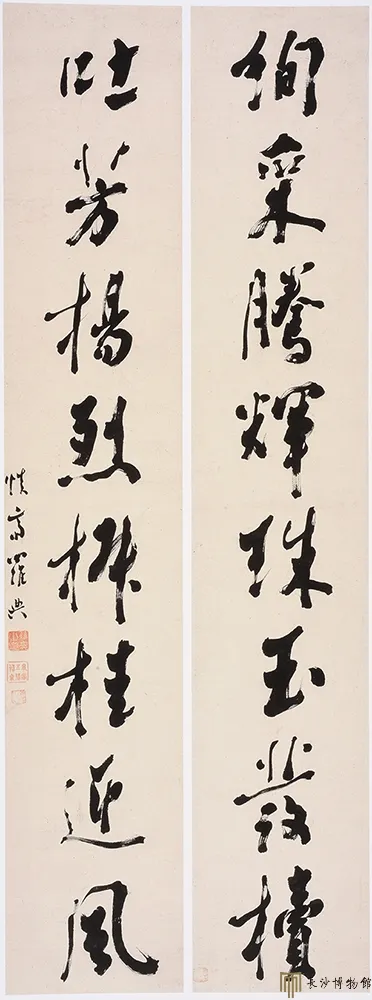 絢采騰輝珠玉發櫝
吐芳揚烈椒桂迎風
慎齋羅典
長沙博物館